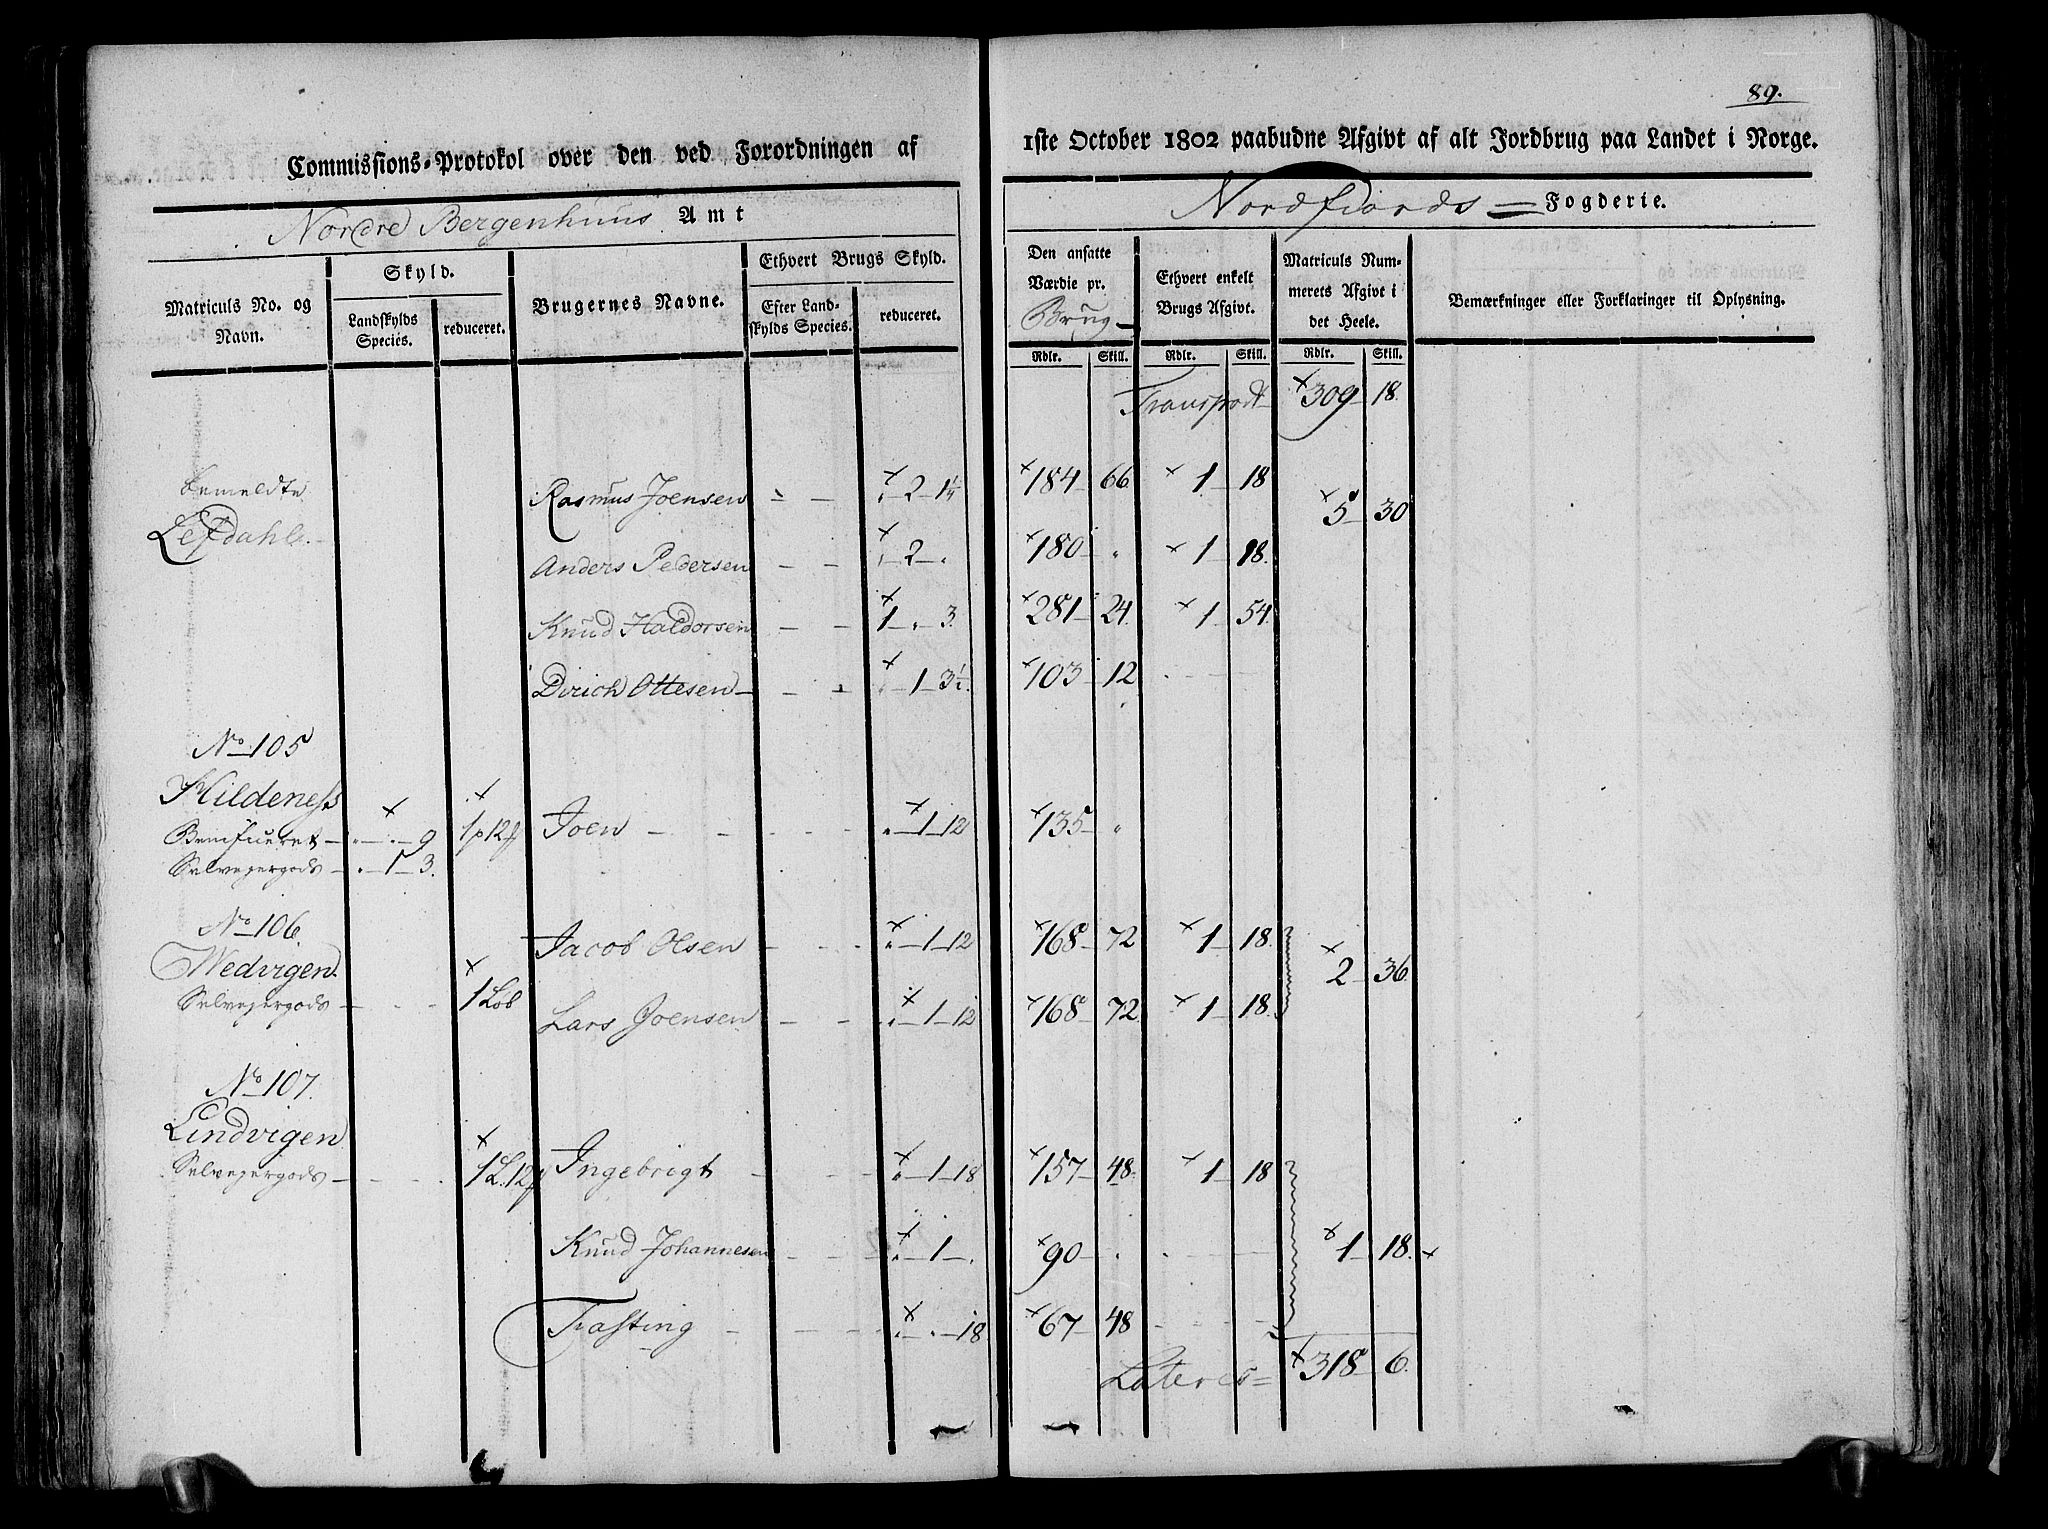 89.
Commissions-Protokol over den ved Forordningen af 1ste October 1802 paabudne Afgivt af alt Jordbrug paa Landet i Norge.
Nordre Bergenhuus Amt
Nordfiords Fogderie.
Matriculs No. og Navn.
Skyld.
Landskylds Species.
reduceret.
Brugernes Navne.
Ethvert Brugs Skyld.
Efter Landskylds Species.
reduceret.
Den ansatte Værdie pr. Brug
Ethvert enkelt Brugs Afgivt.
Matriculs Nummerets Afgivt i det Heele.
Bemærkninger eller Forklaringer til Oplysning.
Rdlr. Skill. Rdlr. Skill. Rdlr. Skill.
Transport 309 18.
bemeldte Rasmus Joensen 2 1¼ 184 66 1 18
5 30
Lefdahl. Anders Pedersen 2 180 1 18.
Knud Haldorsen 1 . 3. 281 24. 1 54.
Dirich Ottesen 1 3½ 103 12
No 105
Hildeness
Beneficeret 9 1p 12 Joen 1 12 135
Selveyergods 1 3.
No 106
Jacob Olsen 1 12 168 72 1 18.
Wedvigen.
2 36.
Selveyergods 1 Løb Lars Joensen 1 12 168 72 1 18.
No 107.
Lindvigen
Selveyergods 1 L. 12 Ingebrigt 1 18 157 48. 1 18
Knud Johannesen 1 90 1 18.
Trasting 18 67 48
Lateris 318 6.